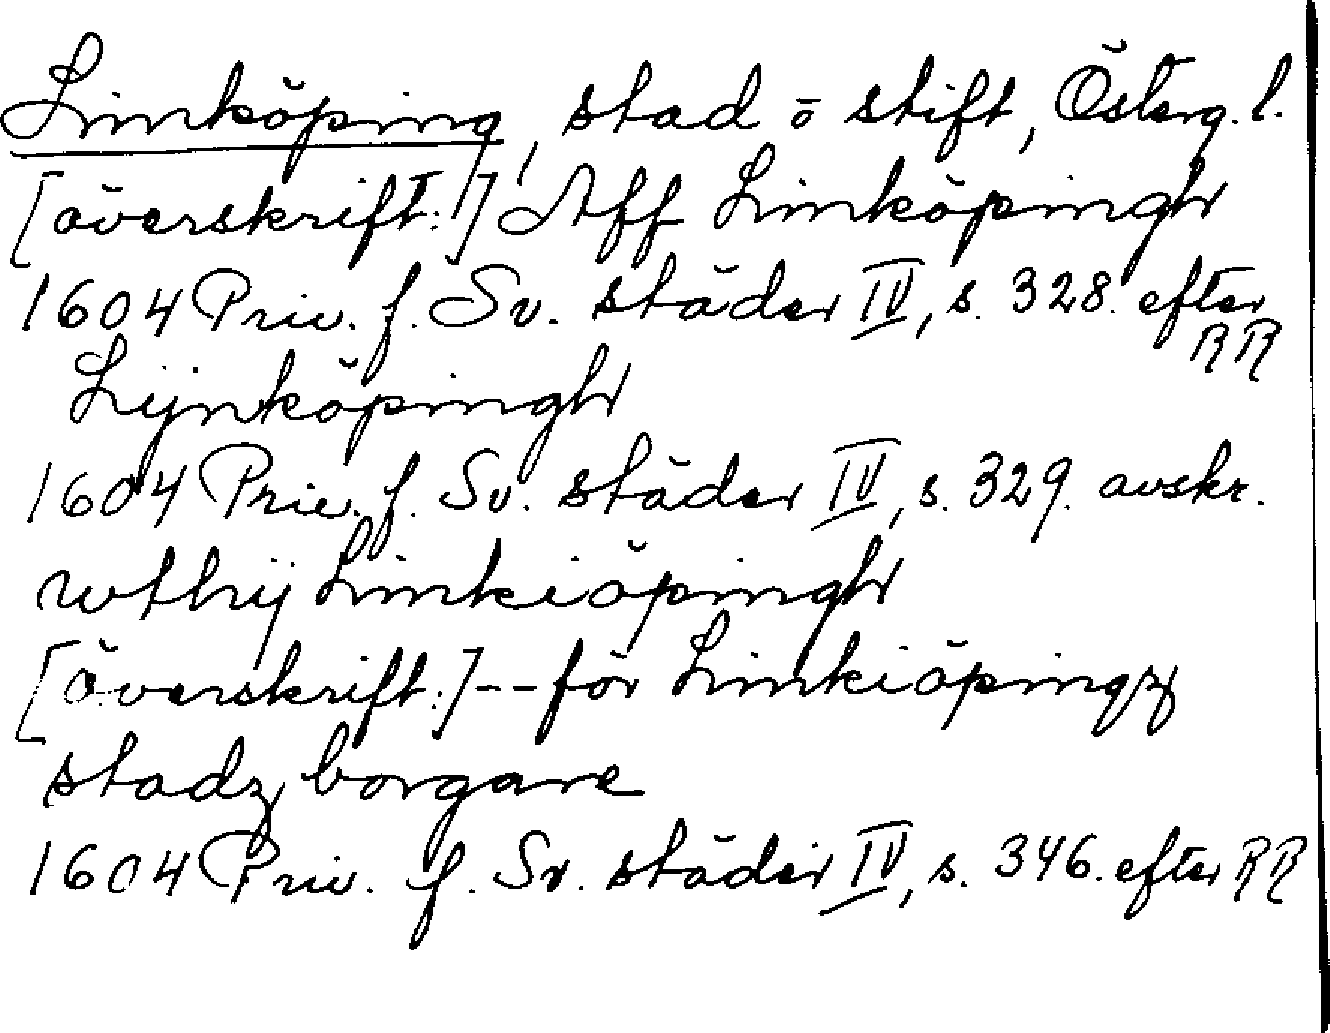 Linköping, stad ō stift, Österg. l.
[överskrift:] Aff Linköpingh
1604 Priv. f. Sv. städer IV, s. 328. efter
RR
Lijnköpingh
1604 Priv. f. Sv. städer IV, s. 329. avskr.
wthij Linkiöpingh
[överskrift:] -- för Linkiöpingz
stadz borgare
1604 Priv. f. Sv. städer IV, s. 346. efter RR